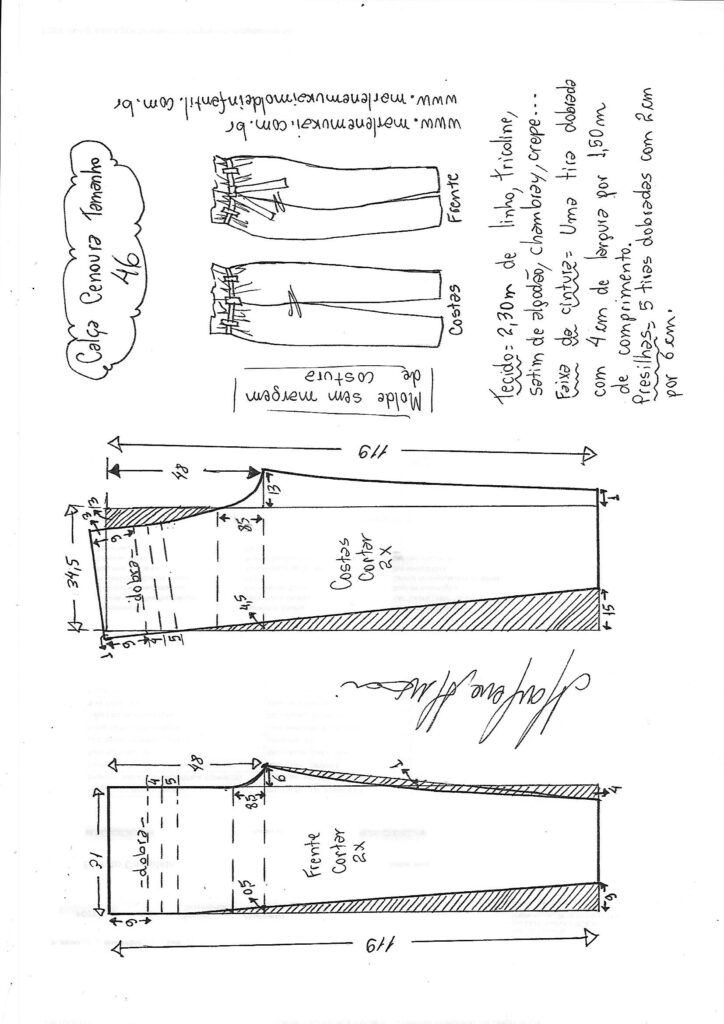 Calça Cenoura Tamanho
46
www.marlenemukai.com.br
www.marlenemukaimoldeinfantil.com.br
Costas
Frente
Molde sem margem
de costura
Tecido= 2,30m de linho, tricoline,
satim de algodão, chambray, crepe...
Faixa da cintura= Uma tira dobrada
com 4cm de largura por 1,50m
de comprimento.
Presilhas= 5 tiras dobradas com 2cm
por 6cm.
119
48
13
3
3
34,5
9
-dobra-
85
4,5
1
9
4
5
1
15
Costas
Cortar
2x
Marlene Mukai
48
4
5
6
85
1
4
-dobra-
0,5
9
Frente
Cortar
2x
119